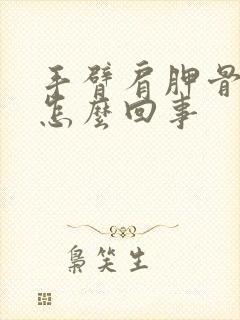 手臂肩胛骨
怎麼回事
梟笑生